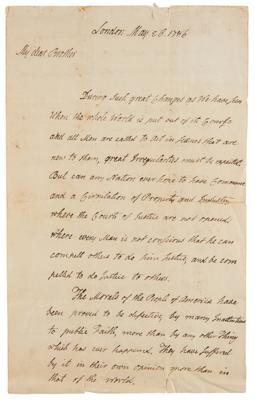 London May 26. 1786
My dear Brother
During such great Changes as We have seen
When the whole World is put out of its Course
and all Men are called to Act in Scenes that are
new to them, great Irregularities must be expected.
But can any Nation ever hope to have Commerce
and a Circulation of Property and Industry
where the Courts of Justice are not opened,
where every Man is not conscious that he can
compell others to do him Justice, and be com
pelled to do Justice to others.
The Morals of the People of America have
been proved to be defective, by many Institutions
to public Faith, more than by any other Thing
which has ever happened. They have suffered
by it in their own opinion more than in
that of the World.